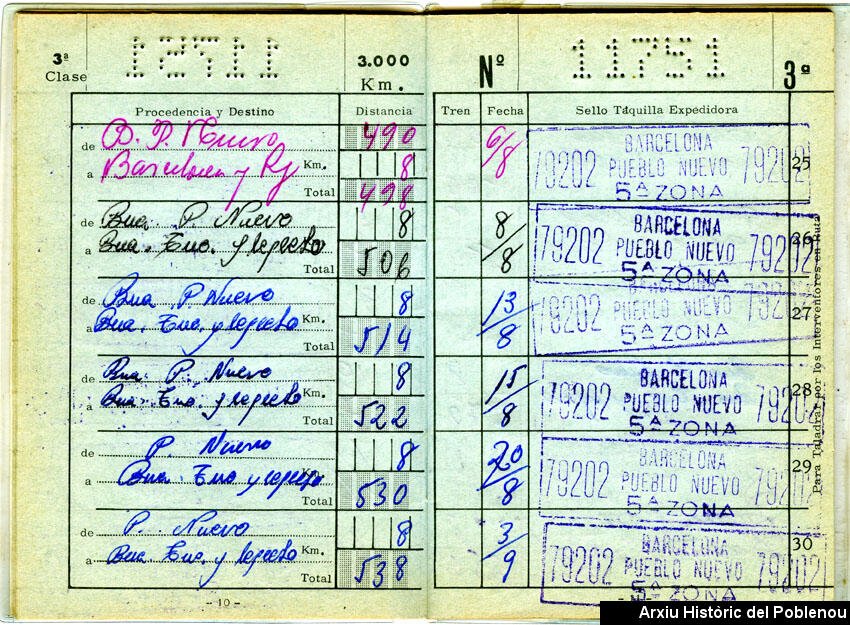 3ª Clase
11751
3.000 Km.
Nº
11751
3ª
Procedencia y Destino
Distancia
Tren
Fecha
Sello Táquilla Expedidora
de B. P. Nuevo 490
a Barcelona y Rg Km. 8
Total 498
6/8
BARCELONA
79202 PUEBLO NUEVO 79202
5ª ZONA
25
de Bna P. Nuevo 8
a Bna. Tno. y regreso
Total 506
8/8
BARCELONA
79202 PUEBLO NUEVO 79202
5ª ZONA
26
de Bna P. Nuevo 8
a Bna. Tno. y regreso Km.
Total 514
13/8
BARCELONA
79202 PUEBLO NUEVO 79202
5ª ZONA
27
de Bna. P. Nuevo 8
a Bna. Tno. y regreso Km.
Total 522
15/8
BARCELONA
79202 PUEBLO NUEVO 79202
5ª ZONA
28
de P. Nuevo 8
a Bna. Tno. y regreso Km.
Total 530
20/8
BARCELONA
79202 PUEBLO NUEVO 79202
5ª ZONA
29
de P. Nuevo 8
a Bna. Tno. y regreso Km.
Total 538
3/9
BARCELONA
79202 PUEBLO NUEVO 79202
5ª ZONA
30
Para Taladrar por los Interventores en Ruta
- 10 -
Arxiu Històric del Poblenou